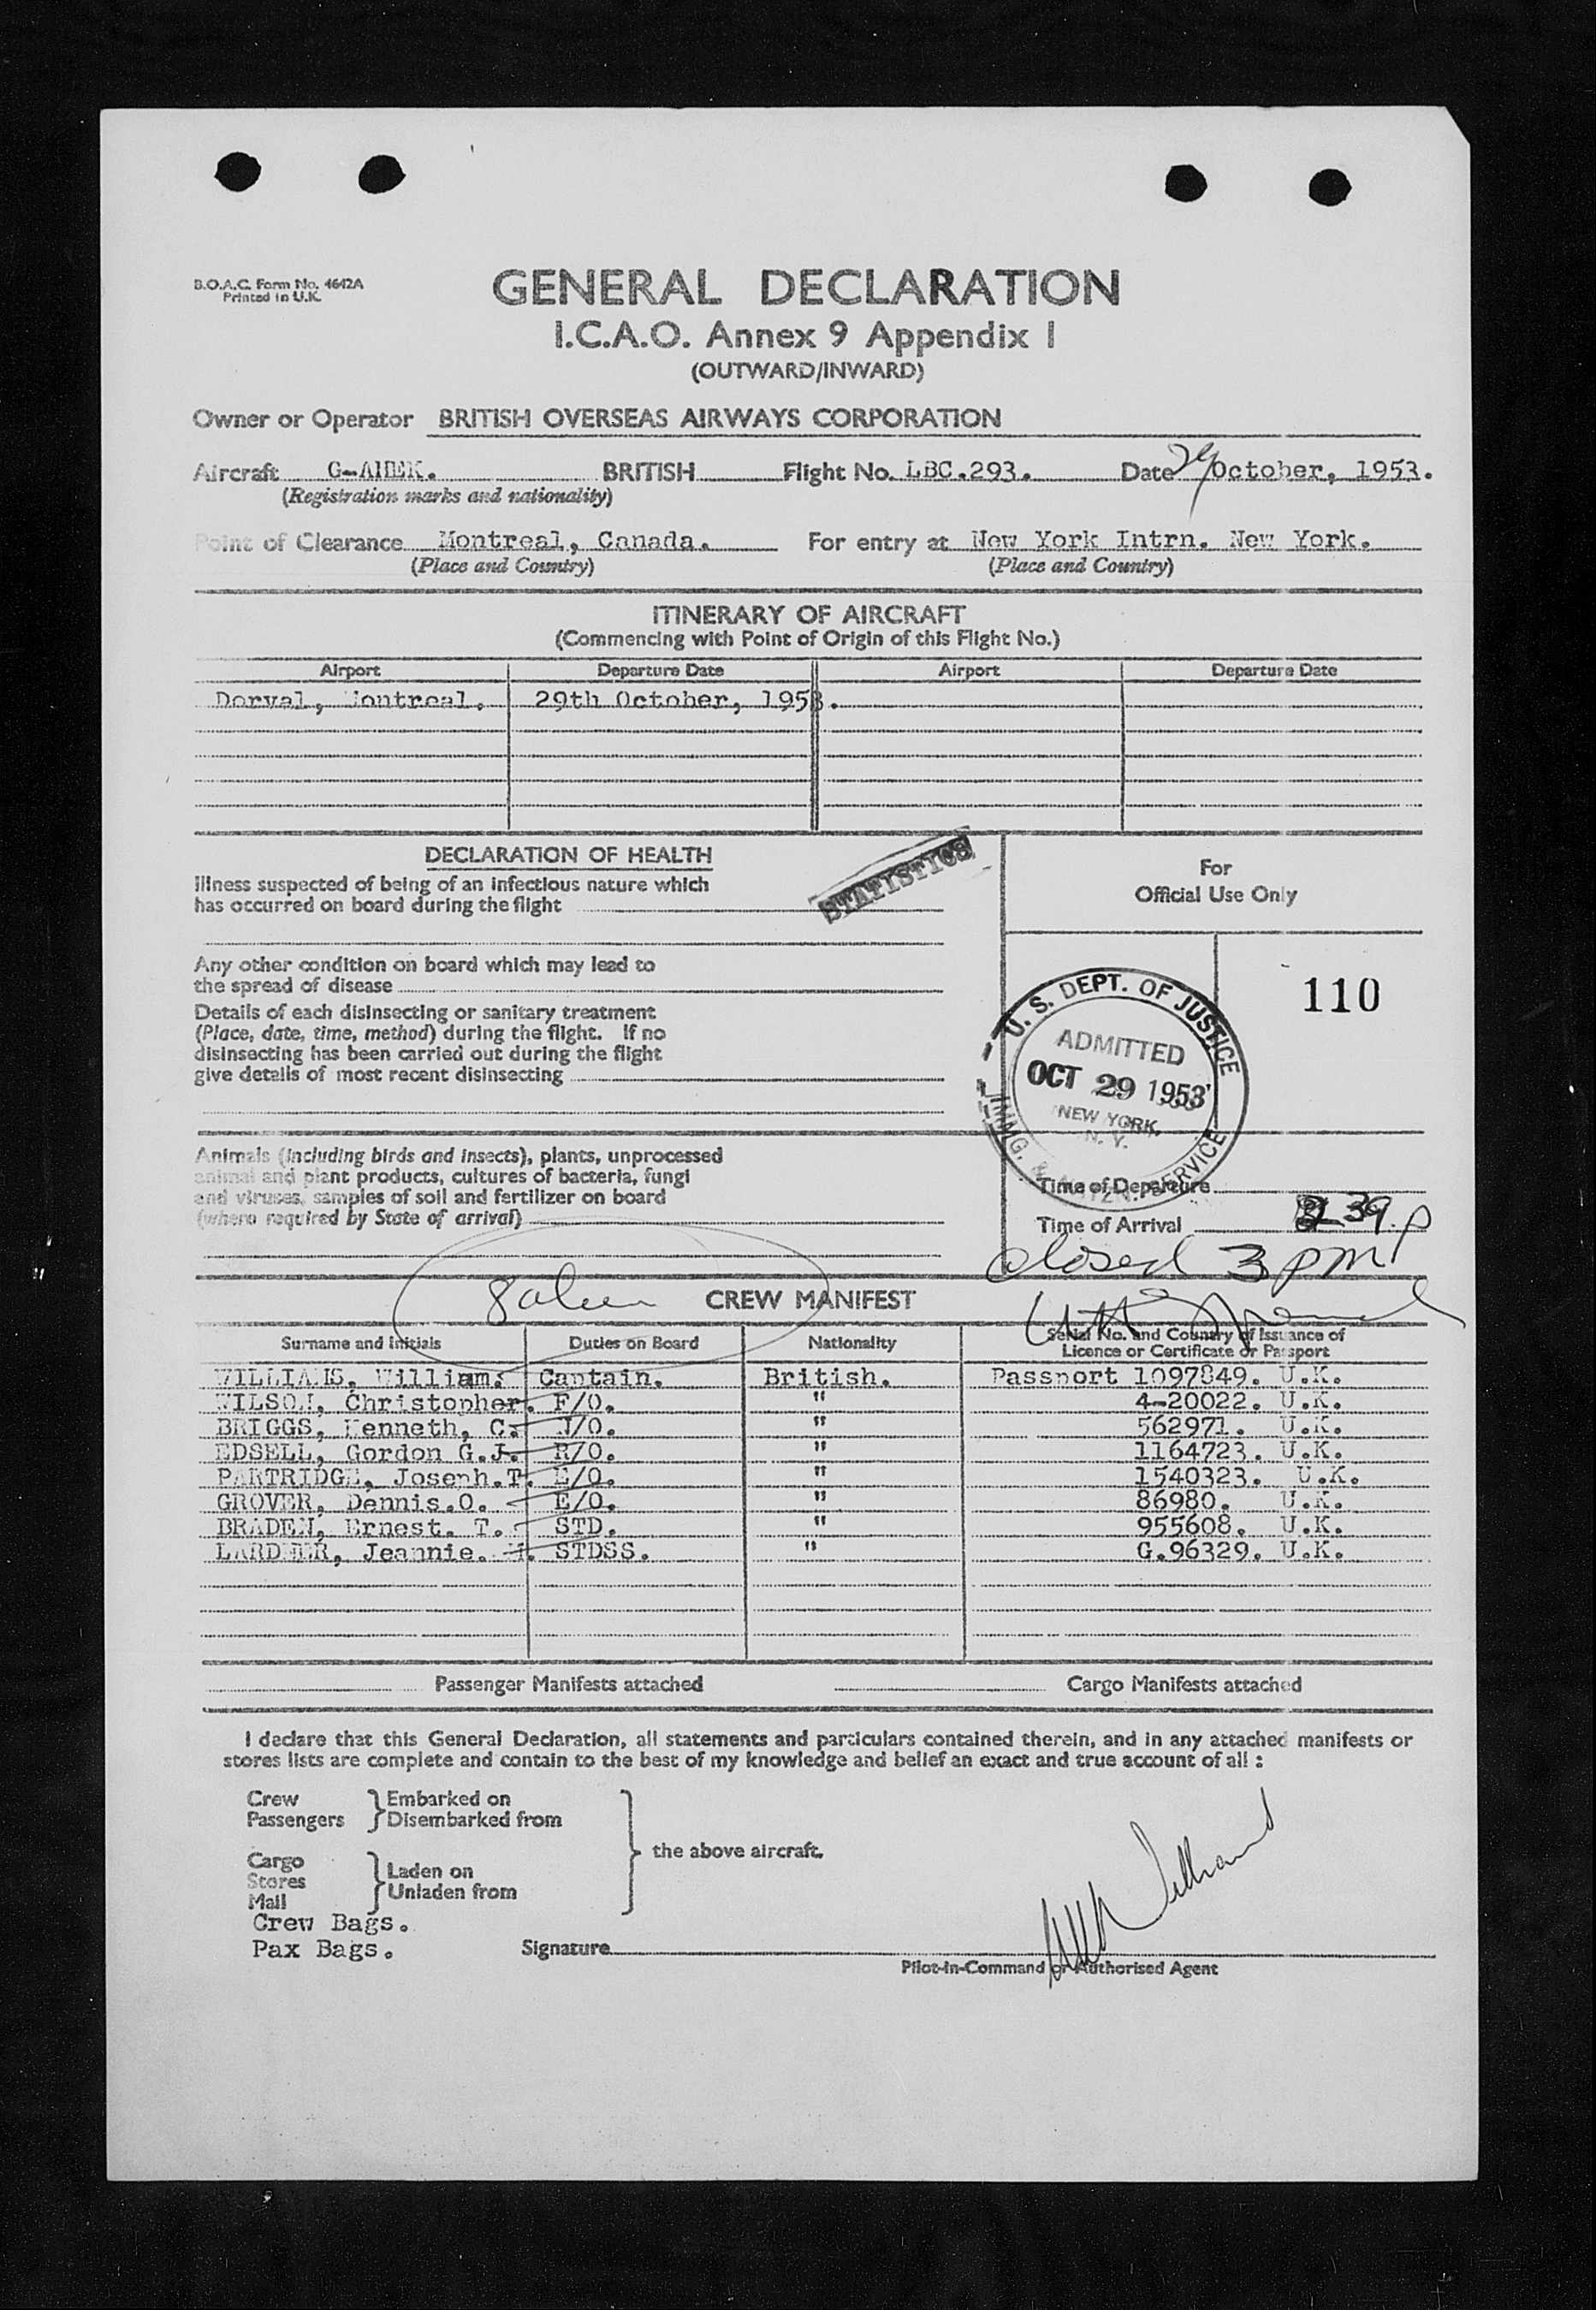 B.O.A.C. Form No. 4642A
Printed in U.K.
GENERAL DECLARATION
I.C.A.O. Annex 9 Appendix I
(OUTWARD/INWARD)
Owner or Operator BRITISH OVERSEAS AIRWAYS CORPORATION
Aircraft BRITISH Flight No. LBC.293. Date 29 October, 1953.
(Registration marks and nationality)
Point of Clearance Montreal, Canada. For entry at New York Intrn. New York.
(Place and Country) (Place and Country)
ITINERARY OF AIRCRAFT
(Commencing with Point of Origin of this Flight No.)
Airport Departure Date Airport Departure Date
Dorval, Montreal. 29th October, 1953.
DECLARATION OF HEALTH
Illness suspected of being of an infectious nature which
has occurred on board during the flight
STATISTICS
For
Official Use Only
Any other condition on board which may lead to
the spread of disease
Details of each disinsecting or sanitary treatment
(Place, date, time, method) during the flight. If no
disinsecting has been carried out during the flight
give details of most recent disinsecting
110
U. S. DEPT. OF JUSTICE
ADMITTED
OCT 29 1953
NEW YORK,
N. Y.
IMMG. & SERVICE
Animals (including birds and insects), plants, unprocessed
animal and plant products, cultures of bacteria, fungi
and viruses, samples of soil and fertilizer on board
(where required by State of arrival)
Time of Departure
Time of Arrival 2 39 p
closed 3 pm
8 alien CREW MANIFEST
Surname and Initials Duties on Board Nationality Serial No. and Country of Issuance of
Licence or Certificate or Passport
WILLIAMS, William. Captain. British. Passport 1097849. U.K.
WILSON, Christopher. F/O. " 4-20022. U.K.
BRIGGS, Kenneth, C. N/O. " 562971. U.K.
EDSELL, Gordon G.J. R/O. " 1164723. U.K.
PARTRIDGE, Joseph.T. E/O. " 1540323. U.K.
GROVER, Dennis.O. E/O. " 86980. U.K.
BRADEN, Ernest. T. STD. " 955608. U.K.
LARDNER, Jeannie. M. STDSS. " G.96329. U.K.
Passenger Manifests attached Cargo Manifests attached
I declare that this General Declaration, all statements and particulars contained therein, and in any attached manifests or
stores lists are complete and contain to the best of my knowledge and belief an exact and true account of all :
Crew Embarked on
Passengers Disembarked from
the above aircraft.
Cargo
Stores Laden on
Mail Unladen from
Crew Bags.
Pax Bags. Signature
Pilot-in-Command or Authorised Agent